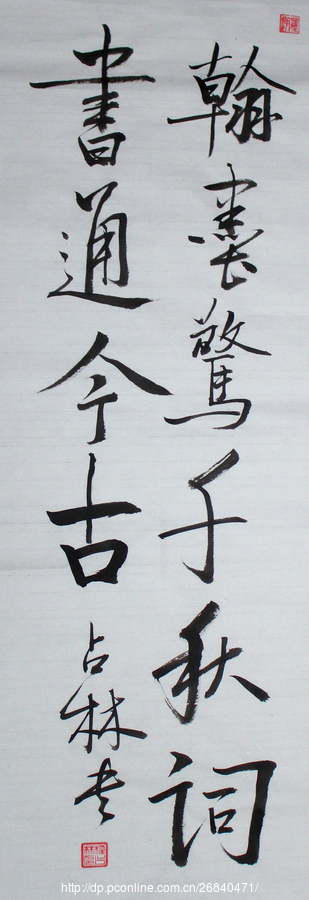 翰墨驚千秋詞
書通今古
占林書
http://dp.pconline.com.cn/26840471/